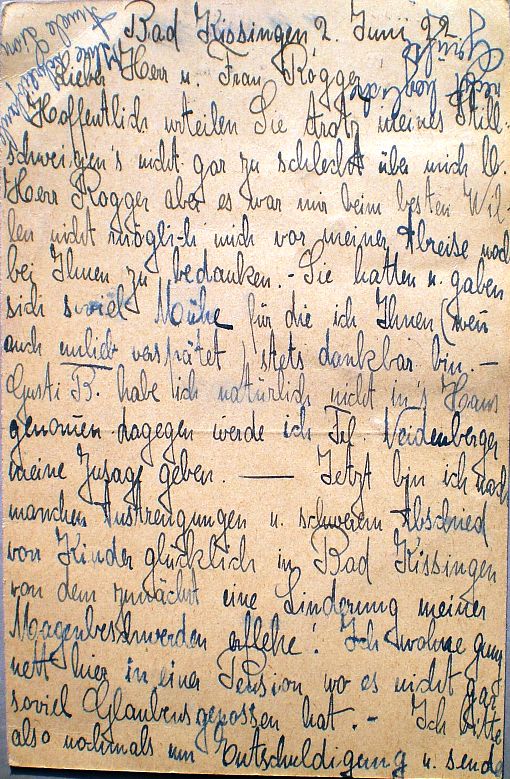 Bad Kissingen 2. Juni 22
Lieber Herr u. Frau Rogger
Hoffentlich urteilen Sie trotz meines Still-
schweigen's nicht gar zu schlecht über mich lb.
Herr Rogger aber es war mir beim besten Wil-
len nicht möglich mich vor meiner Abreise noch
bei Ihnen zu bedanken. - Sie hatten u. gaben
sich soviel Mühe für die ich Ihnen (wen̄
auch unlieb verspätet) stets dankbar bin. —
Gusti B. habe ich natürlich nicht in's Haus
genom̄en dagegen werde ich Frl. Neidenberger
meine Zusage geben. — Jetzt bin ich nach
manchen Anstrengungen u. schwerem Abschied
von Kinder glücklich in Bad Kissingen
von dem zunächst eine Linderung meiner
Maagenbeschwerden erflehe! Ich wohne ganz
nett hier in einer Pension, wo es nicht gar
soviel Glaubensgenossen hat. - Ich bitte
also nochmals um Entschuldigung u. sende
recht herzliche
Grüße